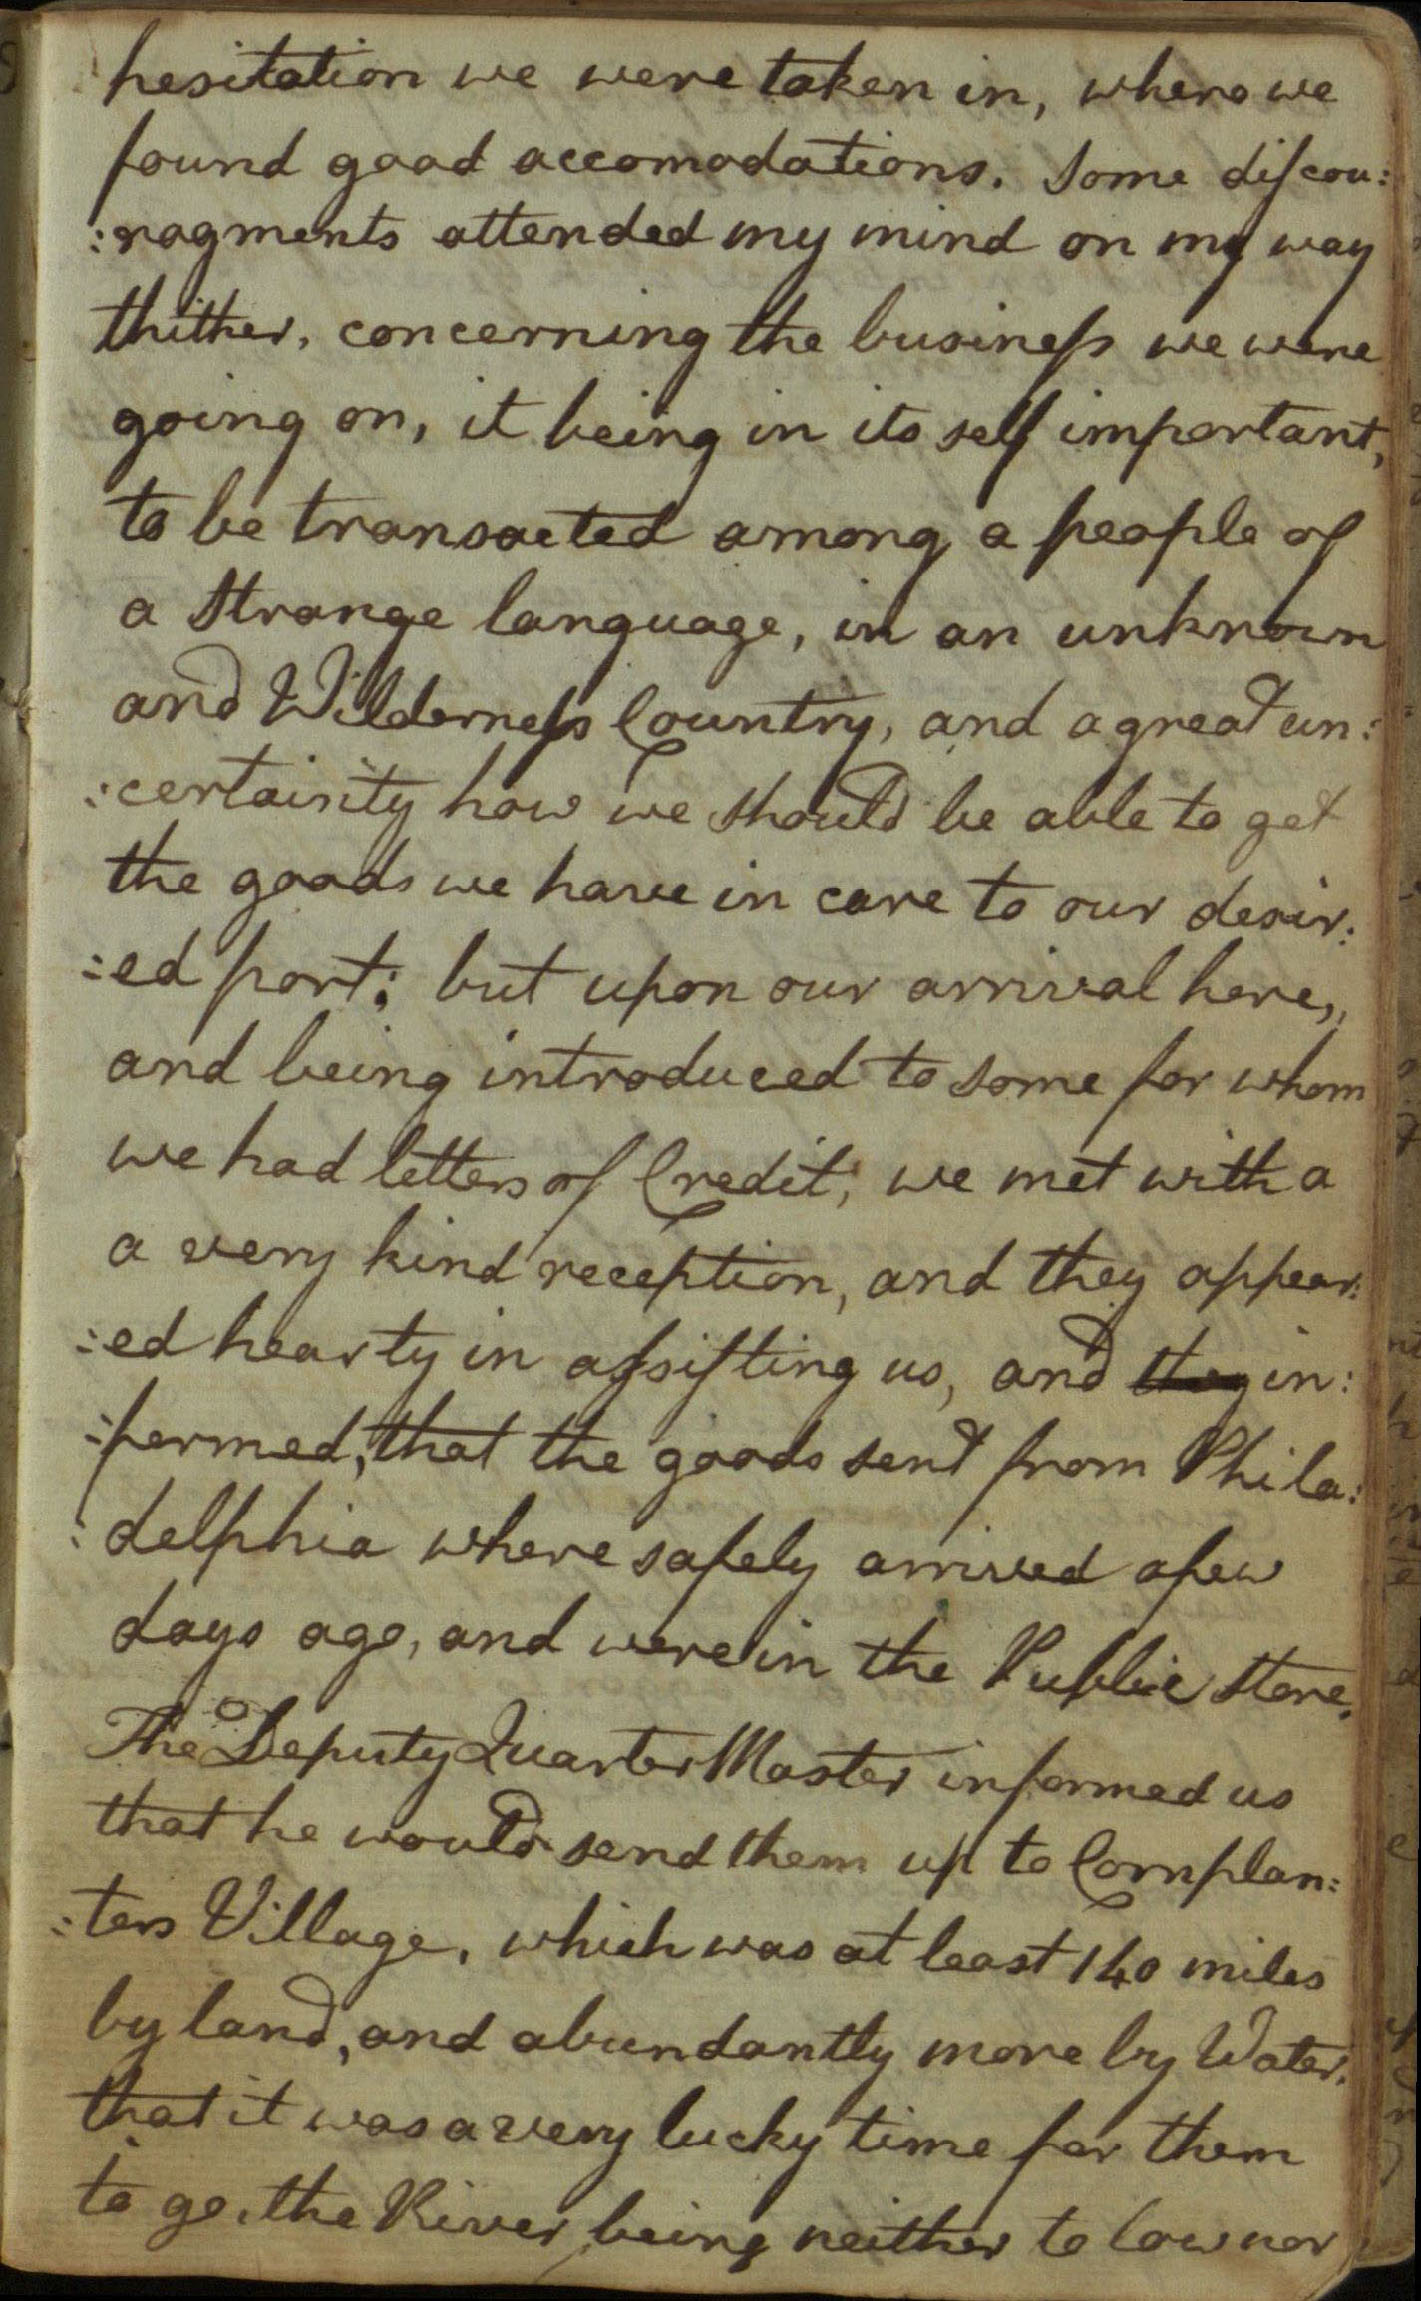 hesitation we were taken in, where we
found good accomodations. Some discou:
:ragments attended my mind on my way
thither, concerning the business we were
going on, it being in its self important,
to be transacted among a people of
a strange language, in an unknown
and Wilderness Country, and a great un:
:certainity how we should be able to get
the goods we have in care to our desir:
:ed port; but upon our arrival here,
and being introduced to some for whom
we had letters of Credit, we met with a
a very kind reception, and they appear:
:ed hearty in assisting us, and they in:
:formed, that the goods sent from Phila:
:delphia where safely arrived a few
days ago, and were in the Public Store.
The Deputy Quarter Master informed us
that he would send them up to Cornplan:
:ters Village, which was at least 140 miles
by land, and abundantly more by Water.
that it was a very lucky time for them
to go, the River being neither to low nor